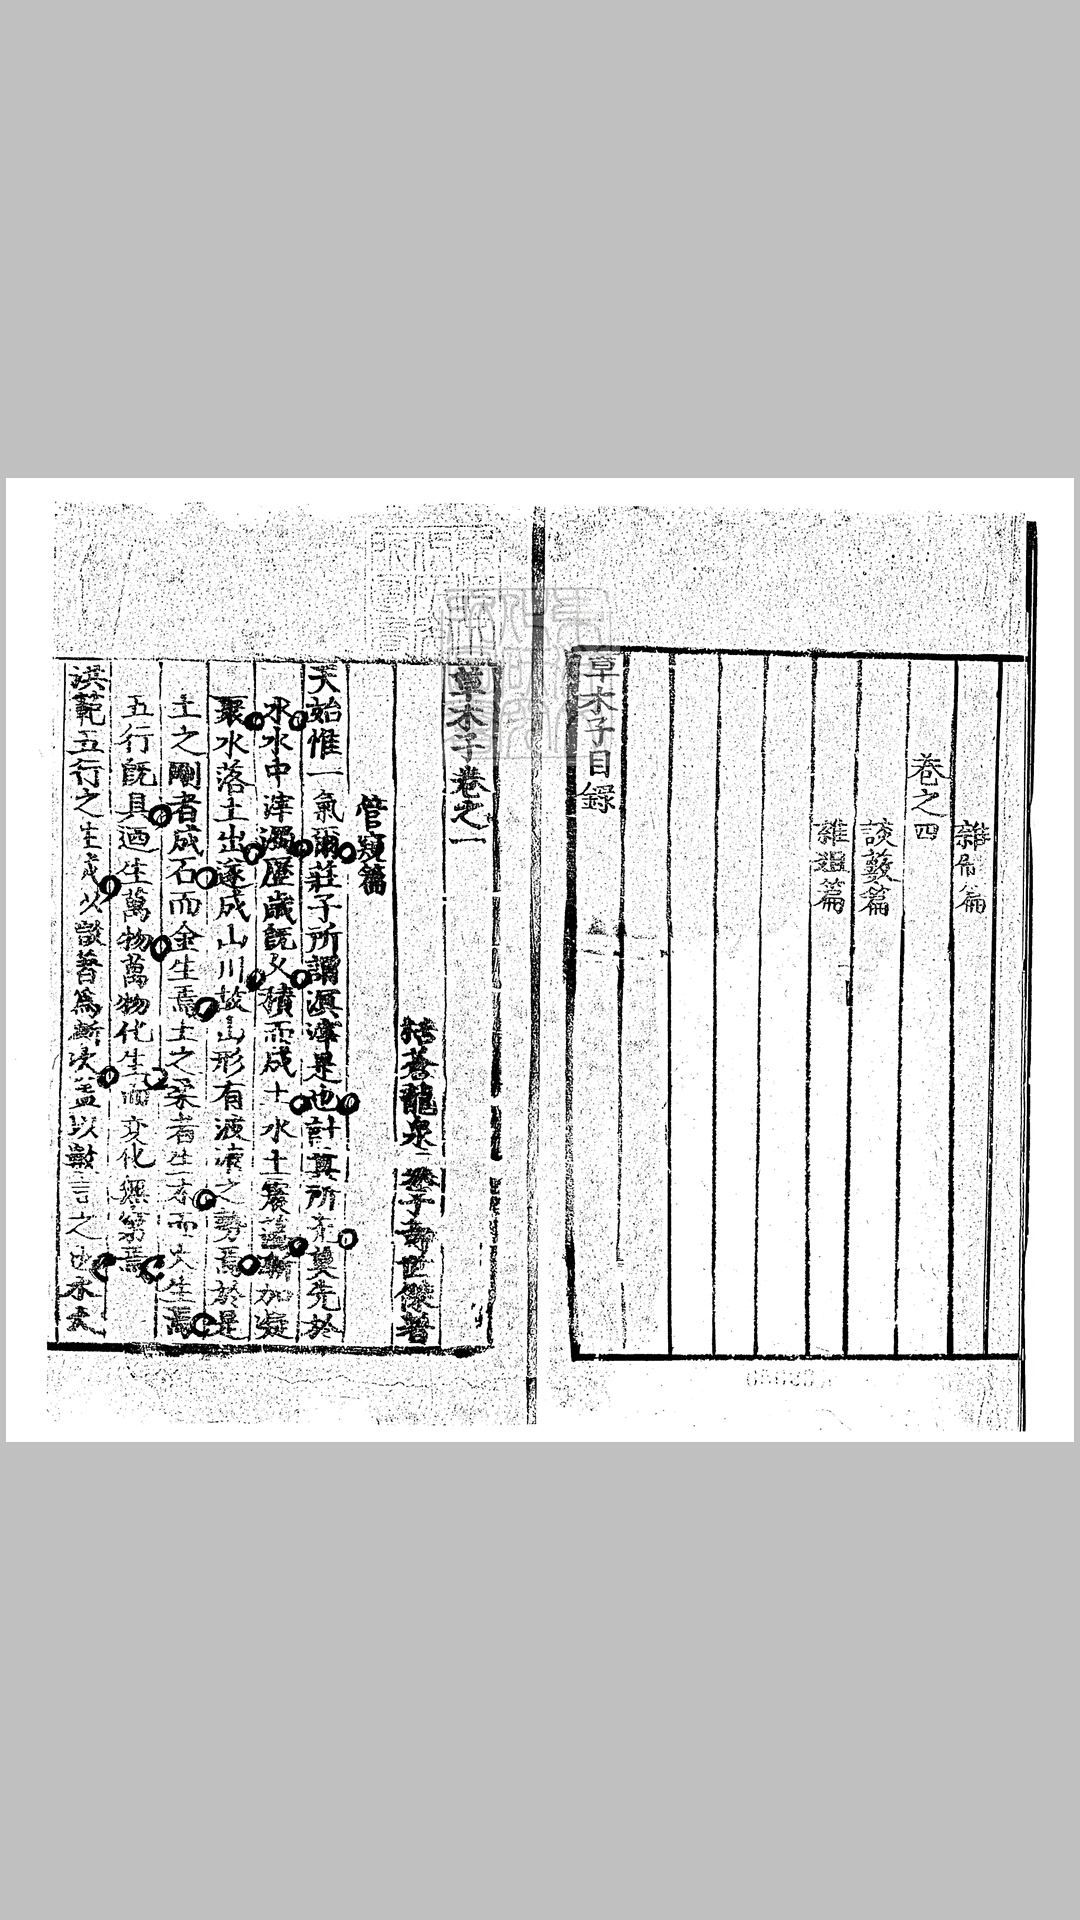 雜俎篇
卷之四
談藪篇
雜俎篇
草木子目錄
草木子卷之一
括蒼龍泉 葉子奇世傑著
管窺篇
天始惟一氣爾莊子所謂溟涬是也計其所先莫先於
水水中滓濁歷歲既久積而成土水土震蕩漸加凝
聚水落土出遂成山川故山形有波浪之勢焉於是
土之剛者成石而金生焉土之柔者生木而火生焉
五行既具迺生萬物萬物化生而变化無窮焉
洪範五行之生成以微著為漸次盖以數言之也水火